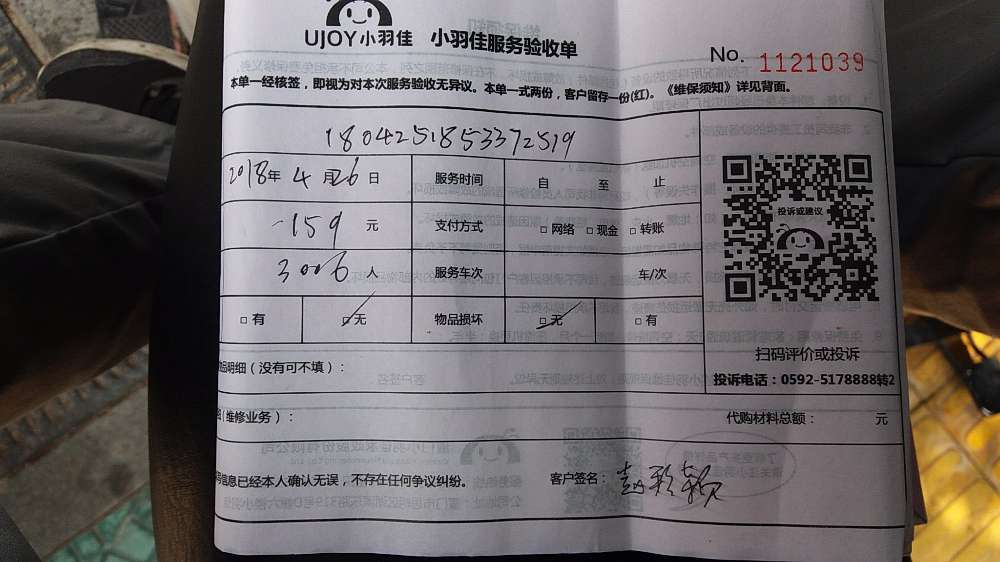 UJOY小羽佳 小羽佳服务验收单
No. 1121039
本单一经核签，即视为对本次服务验收无异议。本单一式两份，客户留存一份(红)。《维保须知》详见背面。
1804251853372519
2018年 4月26日 服务时间 自 至 止
-159 元 支付方式 □网络 □现金 □转账
投诉或建议
3006 人 服务车次 车/次
□有 □无 物品损坏 □无 □有
品明细（没有可不填）：
扫码评价或投诉
投诉电话：0592-5178888转2
(维修业务)： 代购材料总额： 元
信息已经本人确认无误，不存在任何争议纠纷。 客户签名：赵彩颖